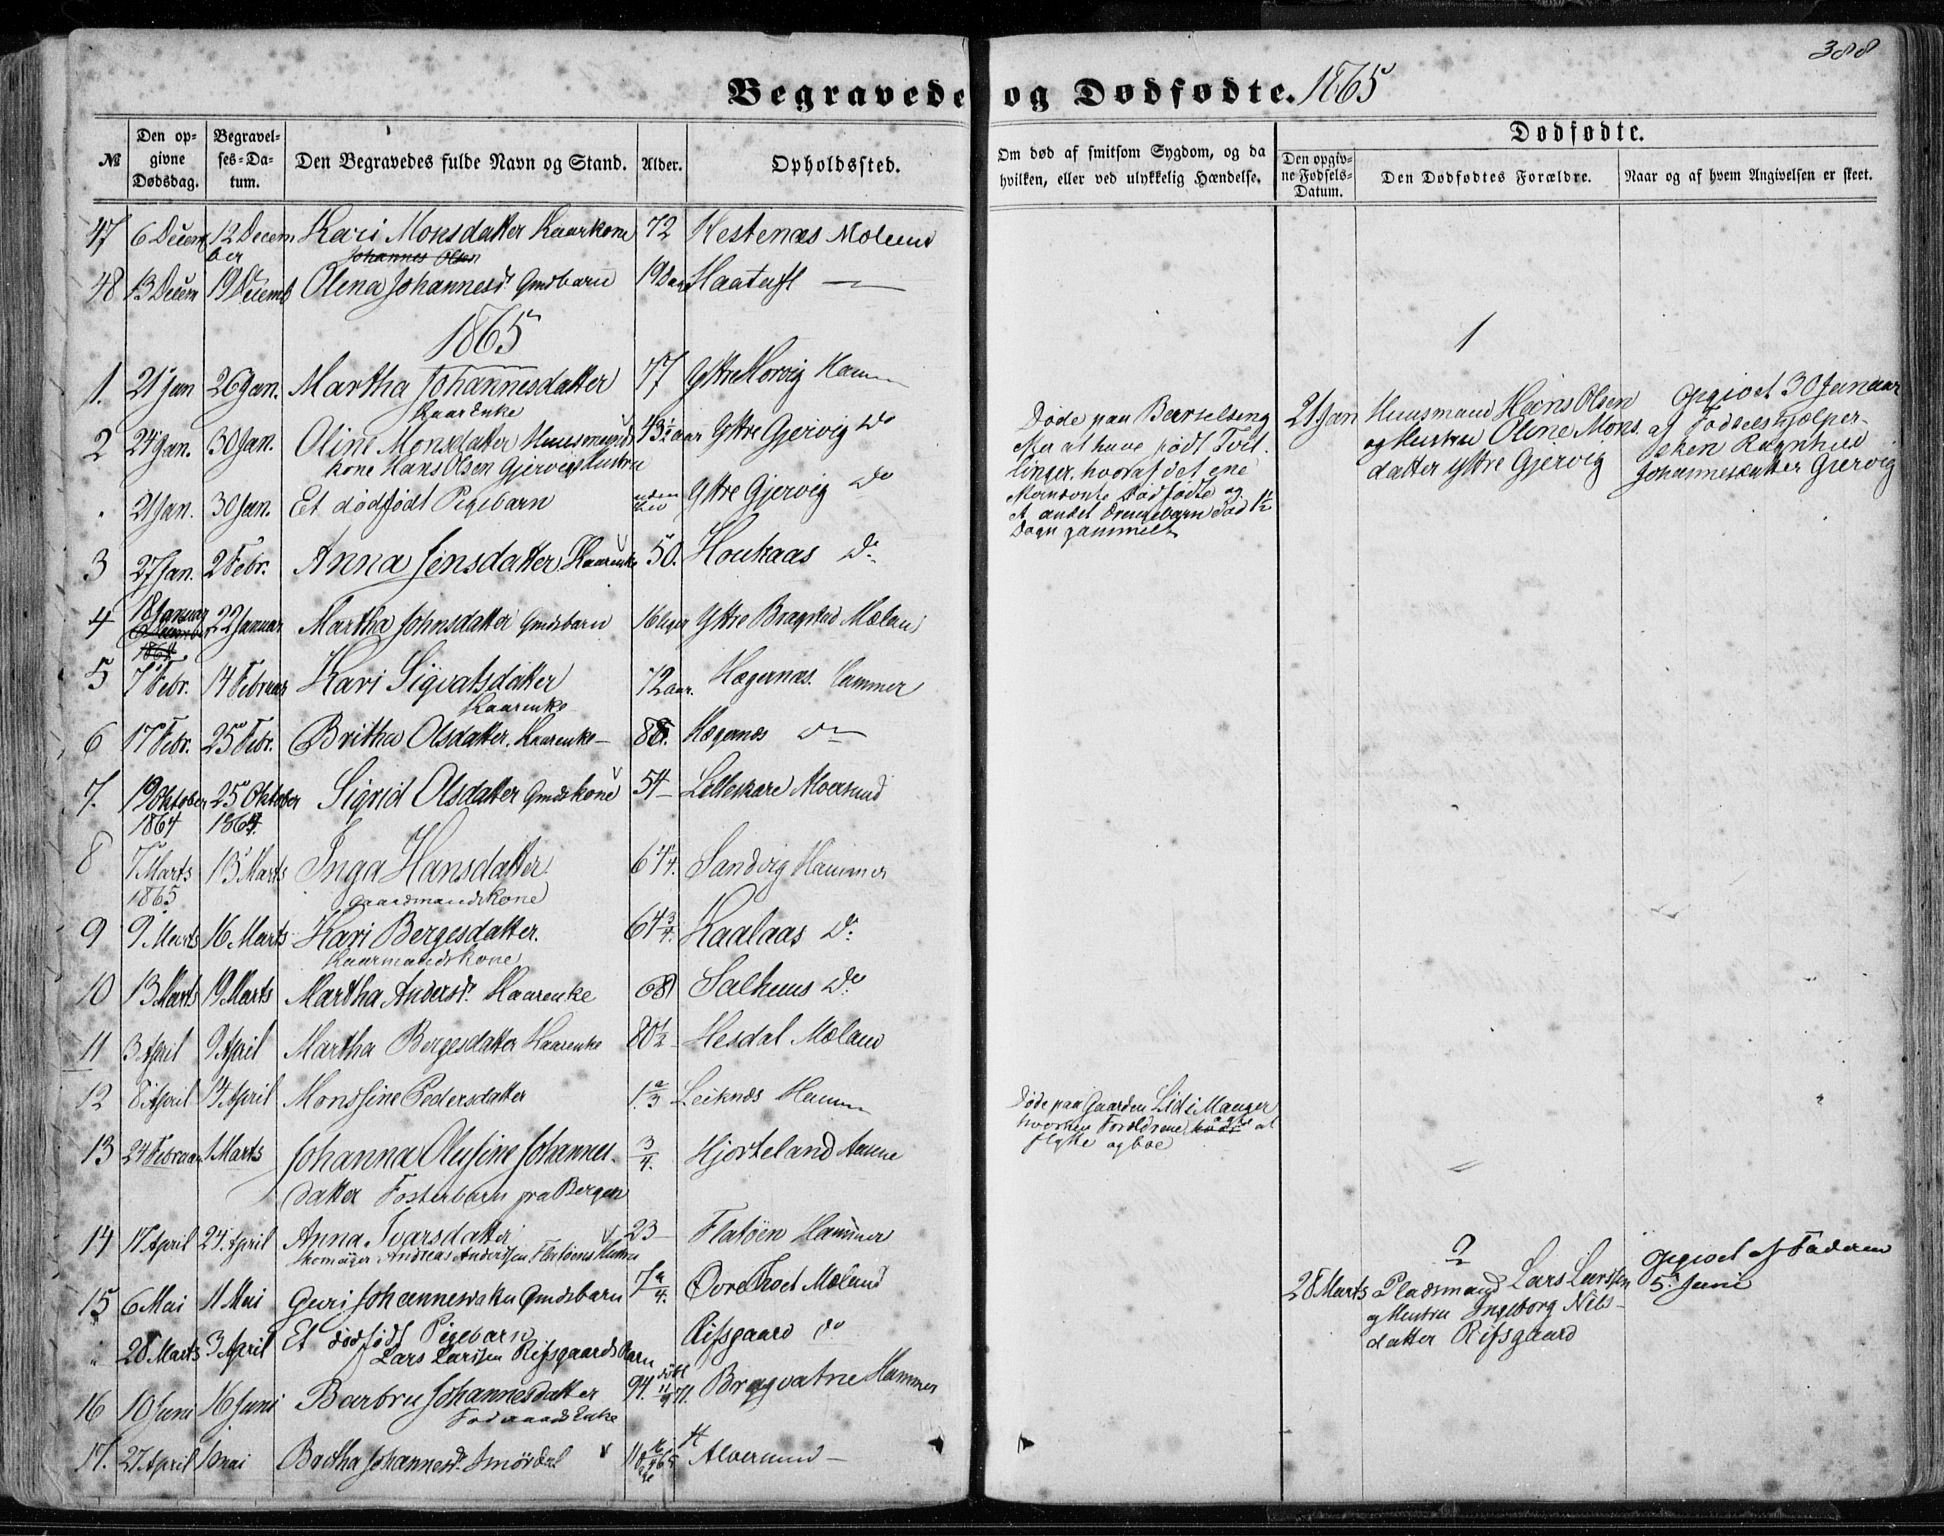 388
Begravede og Dødfødte. 1865
№
Den opgivne Dødsdag.
Begravelses-Datum.
Den Begravedes fulde Navn og Stand.
Alder.
Opholdssted.
Om død af smitsom Sygdom, og da hvilken, eller ved ulykkelig Hændelse.
Dødfødte.
Den opgivne Fødsels-Datum.
Den Dødfødtes Forældre.
Naar og af hvem Angivelsen er skeet.
47 6 Decem 12 December Kari Monsdatter Kaarkone 72 Hestenæs Mæland
Johannes Olsen
48 13 Decem 19 Decemb Olena Johannesd. Gmdbarn 19 Dag Haatuft —
1865
1. 21 Jan 26 Jan. Martha Johannesdatter 77 Ytre Morvig Hammer
Kaarenke
2 24 Jan. 30 Jan. Oline Monsdatter Huusmands 43½ aar Ytre Gjervig Do
kone Hans Olsen Gjervigs Hustru
" 21 Jan. 30 Jan. Et dødfødt Pigebarn uden Liv Ytre Gjervig Do
3 27 Jan. 2 Febr. Anna Jensdatter Kaarenke 50. Houkaas Do
4 18 Januar 22 Januar Martha Johnsdatter Gmdsbarn 16 Uger Ytre Bragstad Mæland
1864
5 7 Febr. 14 Februar Kari Sigvatsdatter 72 aar. Hægernæs. Hammer
Kaarenke
6 17 Febr. 25 Febr. Britha Olsdatter. Kaarenke — 88. Hægernæs Do
7. 19 Oktober 25 Oktober Sigrid Olsdatter Gmdskone 54 — Lilleskare Alversund
1864 1864.
8 7 Marts 13 Marts Inga Hansdatter 64 Sandvig Hammer
1865 Gaardmandskone
9 9 Marts 16 Marts Kari Bergesdatter. 64¾. Kaalaas Do
Kaarmandskone
10 13 Marts 19 Marts Martha Andersd. Kaarenke 68 Salhuus Do
11 3 April 9 April Martha Bergesdatter Kaarenke 80½ Hesdal Mæland
12 8 April 14 April Monssine Pedersdatter Leiknæs Hammer
13 24 Februar 1 Marts Johanna Olufine Johannes- ¾. Hjorteland Hamre
datter Fosterbarn fra Bergen
14 17 April 24 April Anna Ivarsdatter 23 — Flatøen Hammer
Skomager Andreas Anderssen Flatøens Hustru
15 6 Mai 11 Mai Guri Johannesdatter Gmdsbarn Øvre Tvet Mæland
" 28 Marts 3 April Et dødfødt Pigebarn Rifsgaard do
Lars Larssen Rifsgaards Barn
16 10 Juni 16 Juni Barbru Johannesdatter 94. Bragvatne Hammer
Enke
17. 27 April 1 mai Bretha Johannesd. Smørdal Alversund —
Døde paa Barselseng
efter at have født Tvil-
linger, hvoraf det ene
dødfødte og
et andet Drengebarn død 1½
Døgn gammelt
Døde paa Gaarden Lid i Manger
hvorhen Forældrene at
flytte og boe
1
21 Jan Huusmand Hans Olsen
og Hustru Oline Mons-
datter Ytre Gjervig
Opgivet 30 Januar
af Fødselshjælper-
sken Ragnhild
Johannesdatter Gjervig
2
28 Marts Pladsmand Lars Larssen
og Hustru Ingeborg Nils-
datter Rifsgaard
Opgivet af Faderen
5 Juni